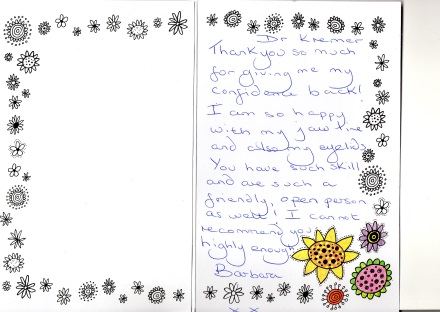 Dr Kremer
Thank you so much
for giving me my
confidence back!
I am so happy
with my jaw line
and also my eyelids.
You have such skill
and are such a
friendly, open person
as well! I cannot
recommend you
highly enough
Barbara
x x